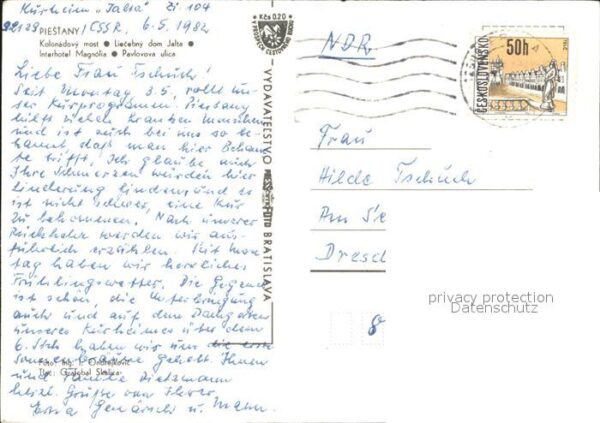 Kurheim „Jalta" Zi 104
92129 PIEŠŤANY/ČSSR, 6.5.1982
Kolonádový most ● Liečebný dom Jalta ●
Interhotel Magnólia ● Pavlovova ulica
Liebe Frau Tschuch!
Seit Montag, 3.5., rollt un-
ser Kurprogramm! Piestany
hilft vielen kranken Menschen
und ist auch bei uns so be-
kannt, daß man hier Bekann-
te trifft. Ich glaube auch
Ihre Schmerzen würden hier
Linderung finden und es
ist nicht schwer, eine Kur
zu bekommen. Nach unserer
Rückkehr werden wir aus-
führlich erzählen. Seit Mon-
tag haben wir herrliches
Frühlingswetter. Die Gegend
ist schön, die Unterbringung
auch und auf dem Dachgarten
unseres Kurheimes über dem
6. Stck haben wir uns die erste
Sonnenbräune geholt. Ihnen
Foto: Ing. I. Ondrejkovič
und Familie Dietzmann
Tlač: Grafobal Skalica
herzl. Grüße von Ihrer
Erna u. Mann.
Kčs 0,20
VYDAVATEĽSTVO
BRATISLAVA
NDR
50h
ČESKOSLOVENSKO
Frau
Hilde Tschuch
Am S
Dresd
privacy protection
Datenschutz
8